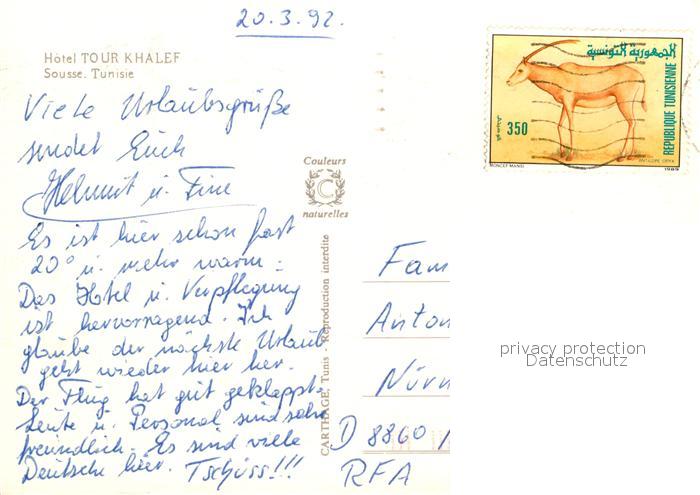 20.3.92.
Hôtel TOUR KHALEF
Sousse. Tunisie
Viele Urlaubsgrüße
sendet Euch
Helmut u. Fine
Es ist hier schon fast
20° u. mehr warm.
Das Hotel u. Verpflegung
ist hervorragend. Ich
glaube der nächste Urlaub
geht wieder hier her.
Der Flug hat gut geklappt.
Leute u. Personal sind sehr
freundlich. Es sind viele
Deutsche hier. Tschüss!!!
Couleurs
C
naturelles
CARTHAGE, Tunis - Reproduction interdite
الجمهورية التونسية
REPUBLIQUE TUNISIENNE
350
MONCEF MANSI
ANTILOPE ORYX
1989
Fam
Anton
Nürn
D 8860
RFA
privacy protection
Datenschutz